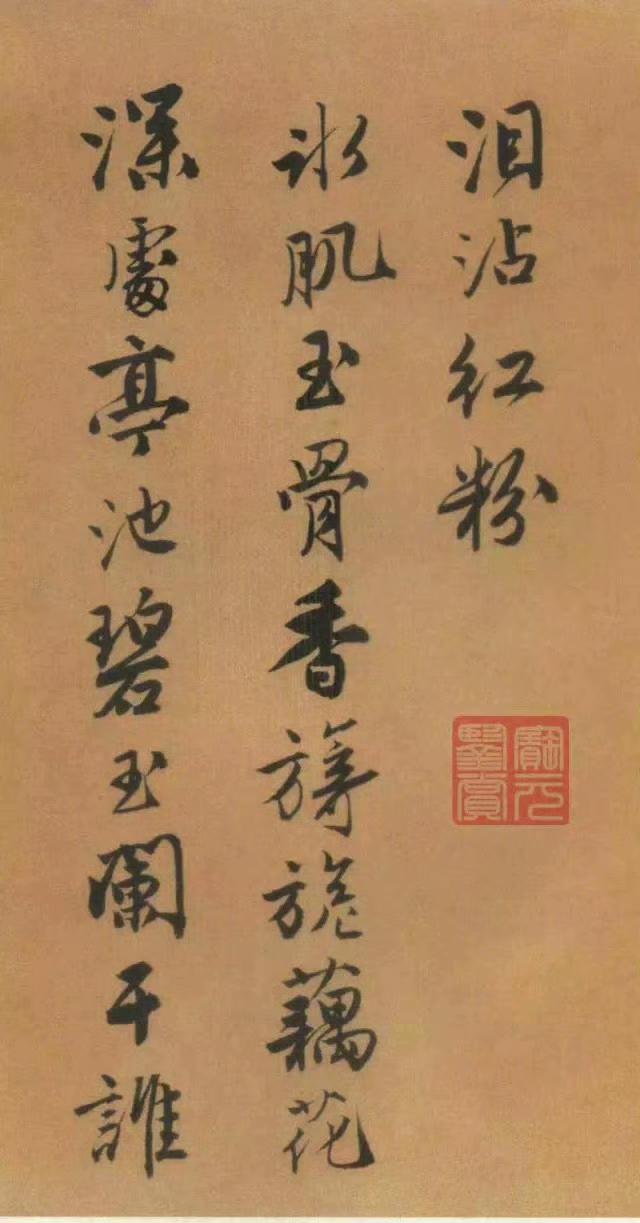 泪沾紅粉
冰肌玉骨香旖旎藕花
深處亭池碧玉闌干誰
寶元
鑒賞